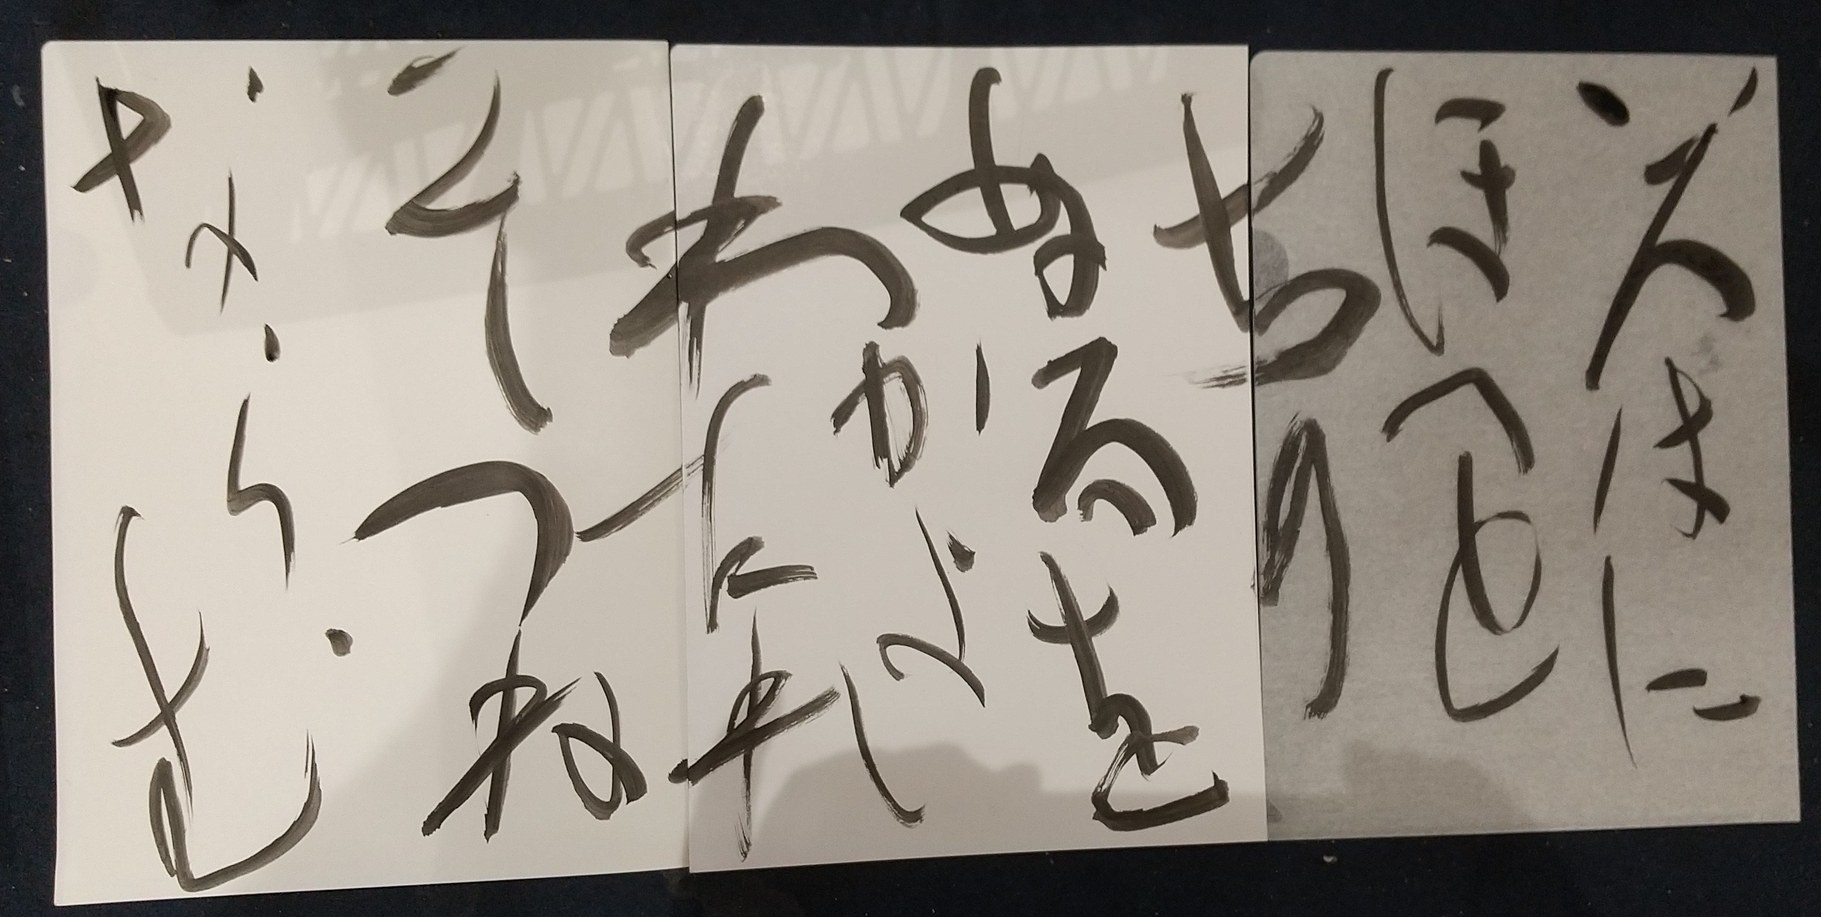 いろはに
ほへと
ちり
ぬるを
わかよ
たれ
そつね
ならむ